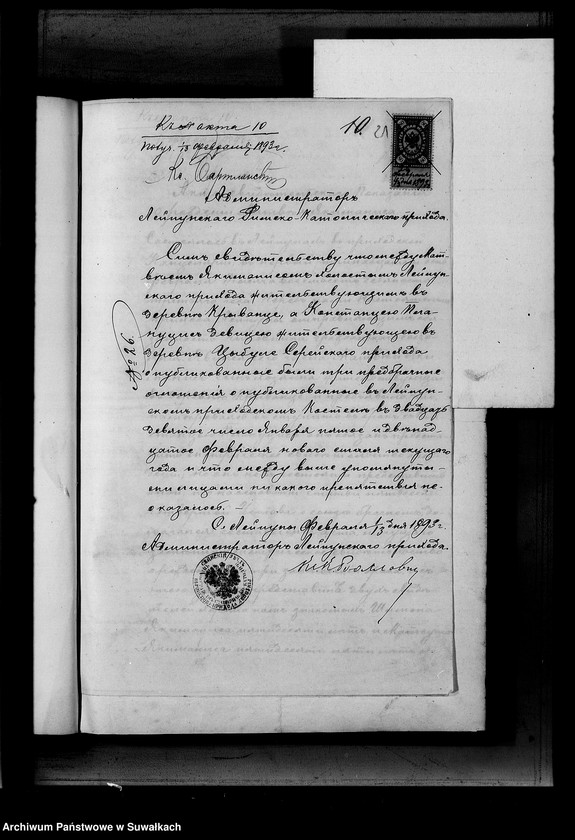 Къ акта 10
10. 21
Получ. 1/13 февраля 1893 г.
Кс. Бартлинскій
Администраторъ
Лейпунскаго Римско-Католическаго прихода.
Симъ свидѣтельствую что между Мат-
вѣемъ холостымъ Лейпун-
скаго прихода жительствующимъ въ
деревнѣ а Констанціею
дѣвицею жительствующею въ
деревнѣ Цыбуле Серейскаго прихода
опубликованные были три предбрачные
оглашенія опубликованные въ Лейпун-
скомъ приходскомъ Костелѣ въ двадцать
девятое число Января пятое и двѣнад-
цатое Февраля новаго стиля текущаго
года и что между выше упомянуты-
ми лицами ни какого препятствія не-
оказалось. —
№ 26.
С. Лейпуны Февраля 1/13 дня 1893 г.
Администраторъ Лейпунскаго прихода.
Archiwum Państwowe w Suwałkach